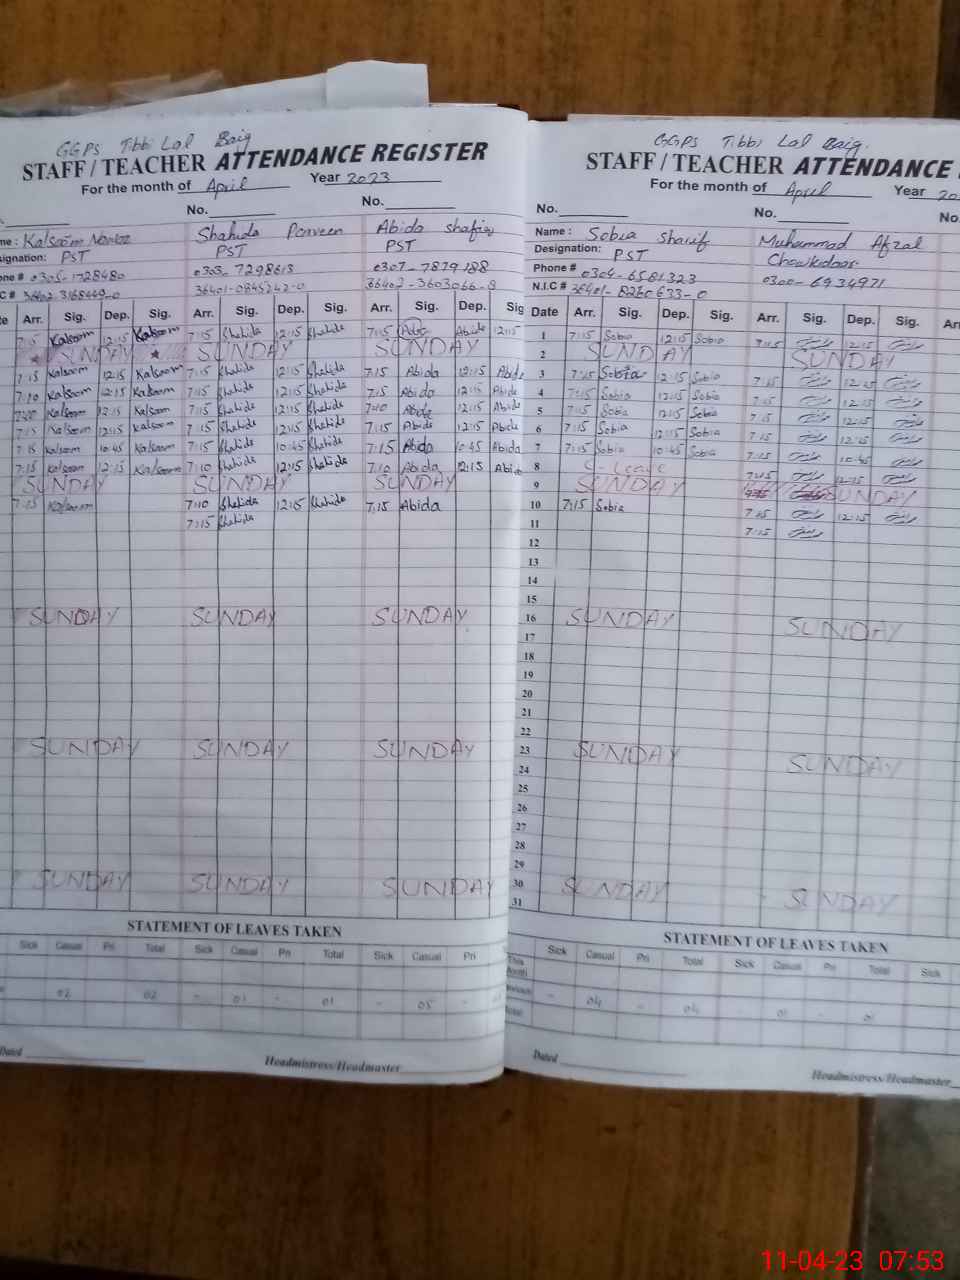 GGPS Tibbi Lal Baig
STAFF / TEACHER ATTENDANCE REGISTER
For the month of April Year 2023
No. No.
Kalsoom Shahida Parveen Abida Shafiq
Designation: PST PST PST
0305-1728480 0303-7298613 0307-7879188
36401-0845242-0 36402-3603066-8
Arr. Sig. Dep. Sig. Arr. Sig. Dep. Sig. Arr. Sig. Dep. Sig
7:15 Kalsoom 12:15 Kalsoom 7:15 Shahida 12:15 Shahida 7:15 Abida 12:15
SUNDAY SUNDAY SUNDAY
7:15 Kalsoom 12:15 Kalsoom 7:15 Shahida 12:15 Shahida 7:15 Abida 12:15 Abida
7:10 Kalsoom 12:15 Kalsoom 7:15 Shahida 12:15 Shahida 7:15 Abida 12:15 Abida
Kalsoom 12:15 Kalsoom 7:15 Shahida 12:15 Shahida 7:10 Abida 12:15 Abida
7:15 Kalsoom 12:15 Kalsoom 7:15 Shahida 12:15 Shahida 7:15 Abida 12:15 Abida
7:15 Kalsoom 10:45 Kalsoom 7:15 Shahida 10:45 Shahida 7:15 Abida 10:45 Abida
7:15 Kalsoom 12:15 Kalsoom 7:10 Shahida 12:15 Shahida 7:10 Abida 12:15 Abida
SUNDAY SUNDAY SUNDAY
7:15 Kalsoom 7:10 Shahida 12:15 Shahida 7:15 Abida
7:15 Shahida
SUNDAY SUNDAY SUNDAY
SUNDAY SUNDAY SUNDAY
SUNDAY SUNDAY SUNDAY
STATEMENT OF LEAVES TAKEN
Sick Casual Pri Total Sick Casual Pri Total Sick Casual Pri
02 02 - 01 - 01 - 05 -
Dated
Headmistress/Headmaster
GGPS Tibbi Lal Baig.
STAFF / TEACHER ATTENDANCE
For the month of April Year 20
No. No. No.
Name : Sobia Sharif Muhammad Afzal
Designation: PST Chowkidoor
Phone # 0304-6581323 0300-6934971
N.I.C # 36401-8260633-0
Date Arr. Sig. Dep. Sig. Arr. Sig. Dep. Sig.
1 7:15 Sobia 12:15 Sobia 7:15 12:15
2 SUNDAY SUNDAY
3 7:15 Sobia 12:15 Sobia 7:15 12:15
4 7:15 Sobia 12:15 Sobia 7:15 12:15
5 7:15 Sobia 12:15 Sobia 7:15 12:15
6 7:15 Sobia 12:15 Sobia 7:15 12:15
7 7:15 Sobia 10:45 Sobia 7:15 10:45
8 C-Leave 7:15 12:15
9 SUNDAY SUNDAY
10 7:15 Sobia 7:15 12:15
11 7:15
12
13
14
15
16 SUNDAY SUNDAY
17
18
19
20
21
22
23 SUNDAY
24 SUNDAY
25
26
27
28
29
30 SUNDAY SUNDAY
31
STATEMENT OF LEAVES TAKEN
Sick Casual Pri Total Sick Casual Pri Total Sick
This Month
- 04 04 - 01 - 01
Dated
Headmistress/Headmaster
11-04-23 07:53